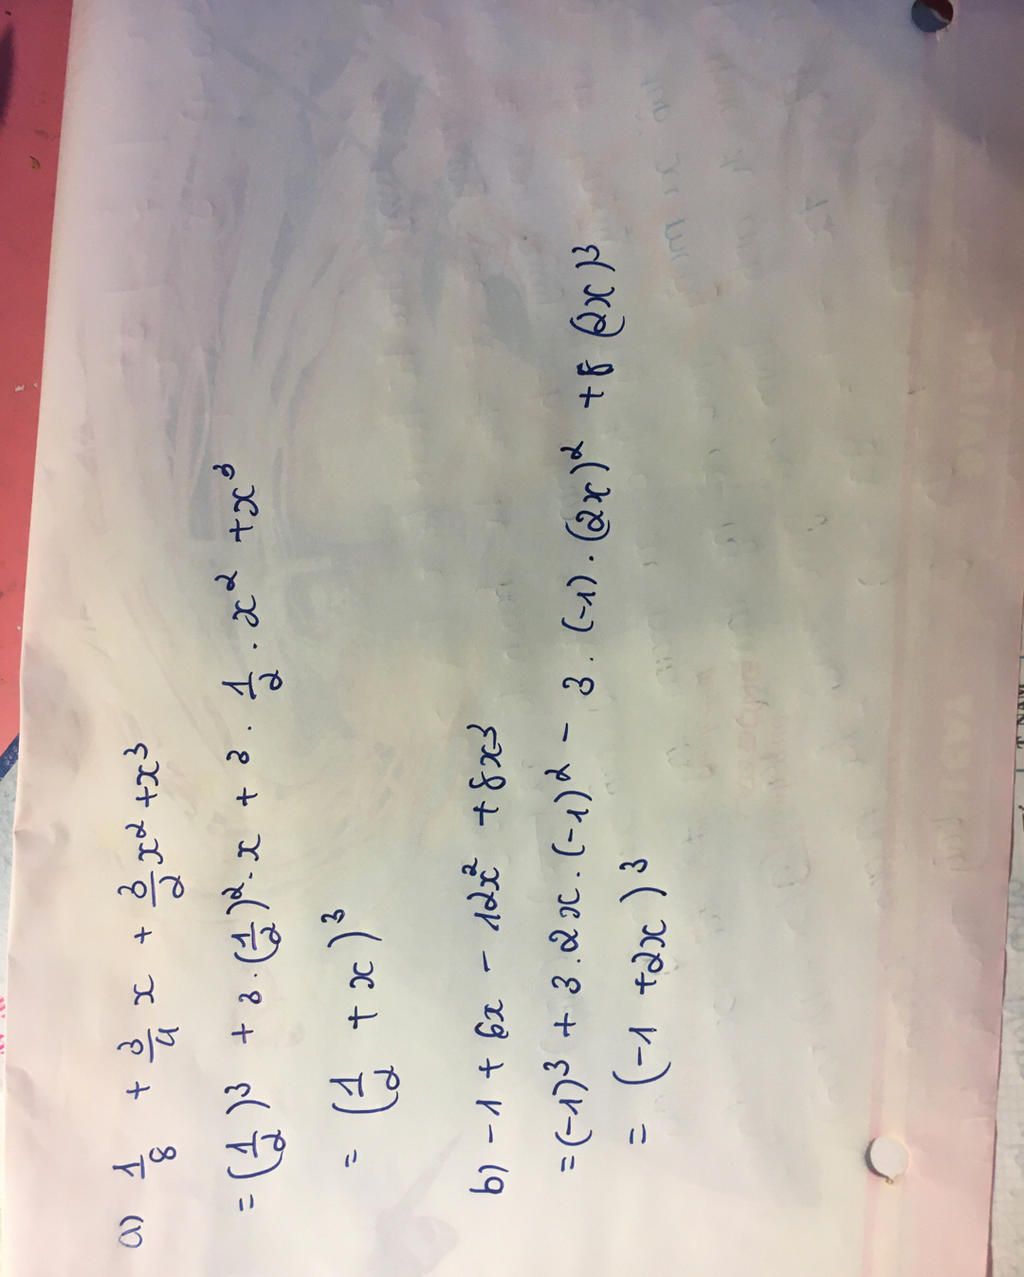 a) 1/8 + 3/4 x + 3/2 x² + x³
= (1/2)³ + 3 · (1/2)² · x + 3 · 1/2 · x² + x³
= (1/2 + x)³
b) -1 + 6x - 12x² + 8x³
= (-1)³ + 3 . 2x . (-1)² - 3 . (-1) . (2x)² + 8 (2x)³
= (-1 + 2x)³